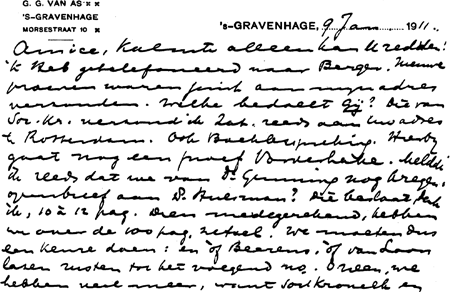 G. G. VAN AS
'S-GRAVENHAGE
MORSESTRAAT 10
'S-GRAVENHAGE, 9 Jan. 1911.
Amice, Kalmte alleen kan U redden!
'k Heb getelefoneerd naar Berger. Nieuwe
proeven waren juist aan mijn adres
verzonden. Welke bedoelt gij? Die van
Soc. Kr. verzond ik Zat. reeds aan Uw adres
te Rotterdam. Ook Boekbespreking. Hierbij
gaat nog een proef Vonderheke. Meldde
ik reeds dat we van Dr. Gunning nog kregen
openbrief aan Dr. Hulsman? Die beslaat, denk
ik, 10 à 12 pag. Dien medegerekend, hebben
we over de 100 pag. zetsel. We moeten dus
een keuze doen: en òf Beerens, òf van Loon
laten rusten tot het volgend no. O neen, we
hebben veel meer, want Soc. Kroniek en